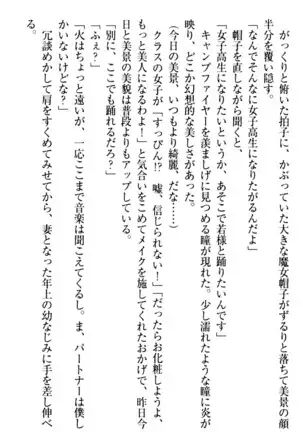 がっくりと俯いた拍子に、かぶっていた大きな魔女帽子がずるりと落ちて美景の顔
半分を覆い隠す。
「なんでそんなに女子高生になりたがるんだよ」
帽子を直しながら聞くと、
「女子高生になりたいというか、あそこで若様と踊りたいんです」
キャンプファイヤーを羨ましげに見つめる瞳が現れた。少し濡れたような瞳に炎が
映り、どこか幻想的な美しさがある。
（今日の美景、いつもより綺麗、だな……）
クラスの女子が「すっぴん!?　嘘、信じられない！」「だったらお化粧しようよ、
もっと美人になるわよ！」と気合いをこめてメイクを施してくれたおかげで、昨日今
日と美景の美貌は普段よりもアップしている。
「別に、ここでも踊れるだろ？」
「ふぇ？」
「火はちょっと遠いが、一応ここまで音楽は聞こえてくるし。ま、パートナーは僕し
かいないけどな？」
冗談めかして肩をすくめてみせてから、妻となった年上の幼なじみに手を差し伸べ
る。